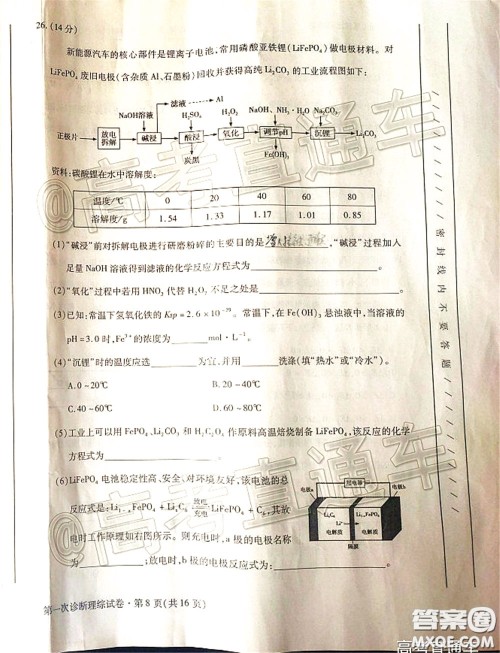 26.(14分)
新能源汽车的核心部件是锂离子电池,常用磷酸亚铁锂(LiFePO₄)做电极材料。对
LiFePO₄废旧电极(含杂质Al、石墨粉)回收并获得高纯Li₂CO₃的工业流程图如下:
滤液 Al
NaOH溶液 H₂SO₄ H₂O₂ NaOH、NH₃·H₂O Na₂CO₃
正极片 放电拆解 碱浸 酸浸 氧化 调节pH 沉锂 Li₂CO₃
炭黑 Fe(OH)₃
资料:碳酸锂在水中溶解度:
温度/℃ 0 20 40 60 80
溶解度/g 1.54 1.33 1.17 1.01 0.85
(1)“碱浸”前对拆解电极进行研磨粉碎的主要目的是,“碱浸”过程加入
足量NaOH溶液得到滤液的化学反应方程式为 。
(2)“氧化”过程中若用HNO₃代替H₂O₂不足之处是 。
(3)已知:常温下氢氧化铁的Ksp=2.6×10⁻³⁹。常温下,在Fe(OH)₃悬浊液中,当溶液的
pH=3.0时,Fe³⁺的浓度为 mol·L⁻¹。
(4)“沉锂”时的温度应选 为宜,并用 洗涤(填“热水”或“冷水”)。
A.0~20℃ B.20~40℃
C.40~60℃ D.60~80℃
(5)工业上可以用FePO₄、Li₂CO₃和H₂C₂O₄作原料高温焙烧制备LiFePO₄,该反应的化学
方程式为 。
(6)LiFePO₄电池稳定性高、安全、对环境友好,该电池的总
反应式是:Li₁₋ₓFePO₄+LiₓC₆ 放电 充电 LiFePO₄+C₆,其放
电时工作原理如右图所示。则充电时,a极的电极名称
为 ;放电时,b极的电极反应方程式为
。
用电器
电极a 电极b
LiₓC₆ Li₁₋ₓFePO₄
Li⁺
电解质 电解质
隔膜
密封线内不要答题
第一次诊断理综试卷·第8页(共16页)
@高考直通车
@高考直通车
答案圈
MXQE.COM
高考直通车